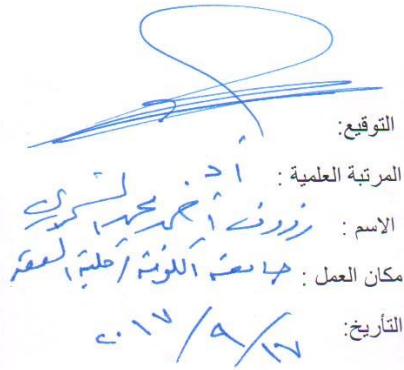 التوقيع:
المرتبة العلمية : أ.د
الاسم : رزوقي أحمد محمد
مكان العمل : جامعة الكوفة / كلية الفقه
التأريخ: ٢٠١٧/٩/١٧